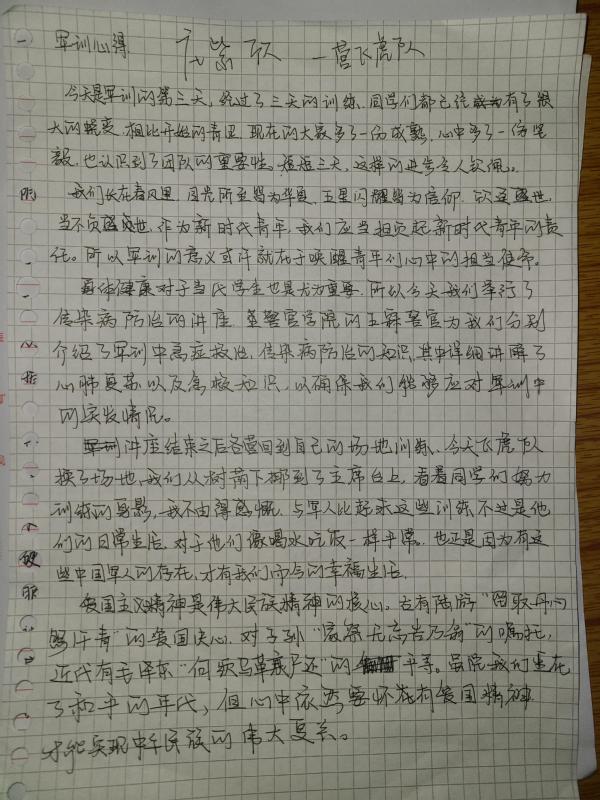 军训心得 紫 一营飞虎队
今天是军训的第三天,经过了三天的训练,同学们都已经有了很
大的蜕变,相比开始的青涩,现在的大家多了一份成熟,心中多了一份坚
毅,也认识到了团队的重要性。短短三天,这样的进步令人钦佩。
我们长在春风里,目光所至皆为华夏,五星闪耀皆为信仰,这盛世,
当不负盛世,作为新时代青年,我们应当担负起新时代青年的责
任。所以军训的意义或许就在于唤醒青年们心中的担当使命。
身体健康对于当代学生也是尤为重要,所以今天我们举行了
传染病防治的讲座,警官学院的王警官为我们分别
介绍了军训中急症救治,传染病防治的知识,其中详细讲解了
心肺复苏以及急救知识,以确保我们能够应对军训中
的突发情况。
讲座结束之后各营回到自己的场地训练,今天飞虎队
换了场地,我们从树荫下挪到了主席台上,看着同学们努力
训练的身影,我不由得感慨,与军人比起来这些训练不过是他
们的日常生活,对于他们像喝水吃饭一样平常。也正是因为有这
些中国军人的存在,才有我们而今的幸福生活。
爱国主义精神是伟大民族精神的核心。古有陆游“留取丹心
照汗青”的爱国决心,对子孙“家祭无忘告乃翁”的嘱托,
近代有毛泽东“何须马革裹尸还”的平等。虽说我们生在
了和平的年代,但心中依然要怀有爱国精神
才能实现中华民族的伟大复兴。